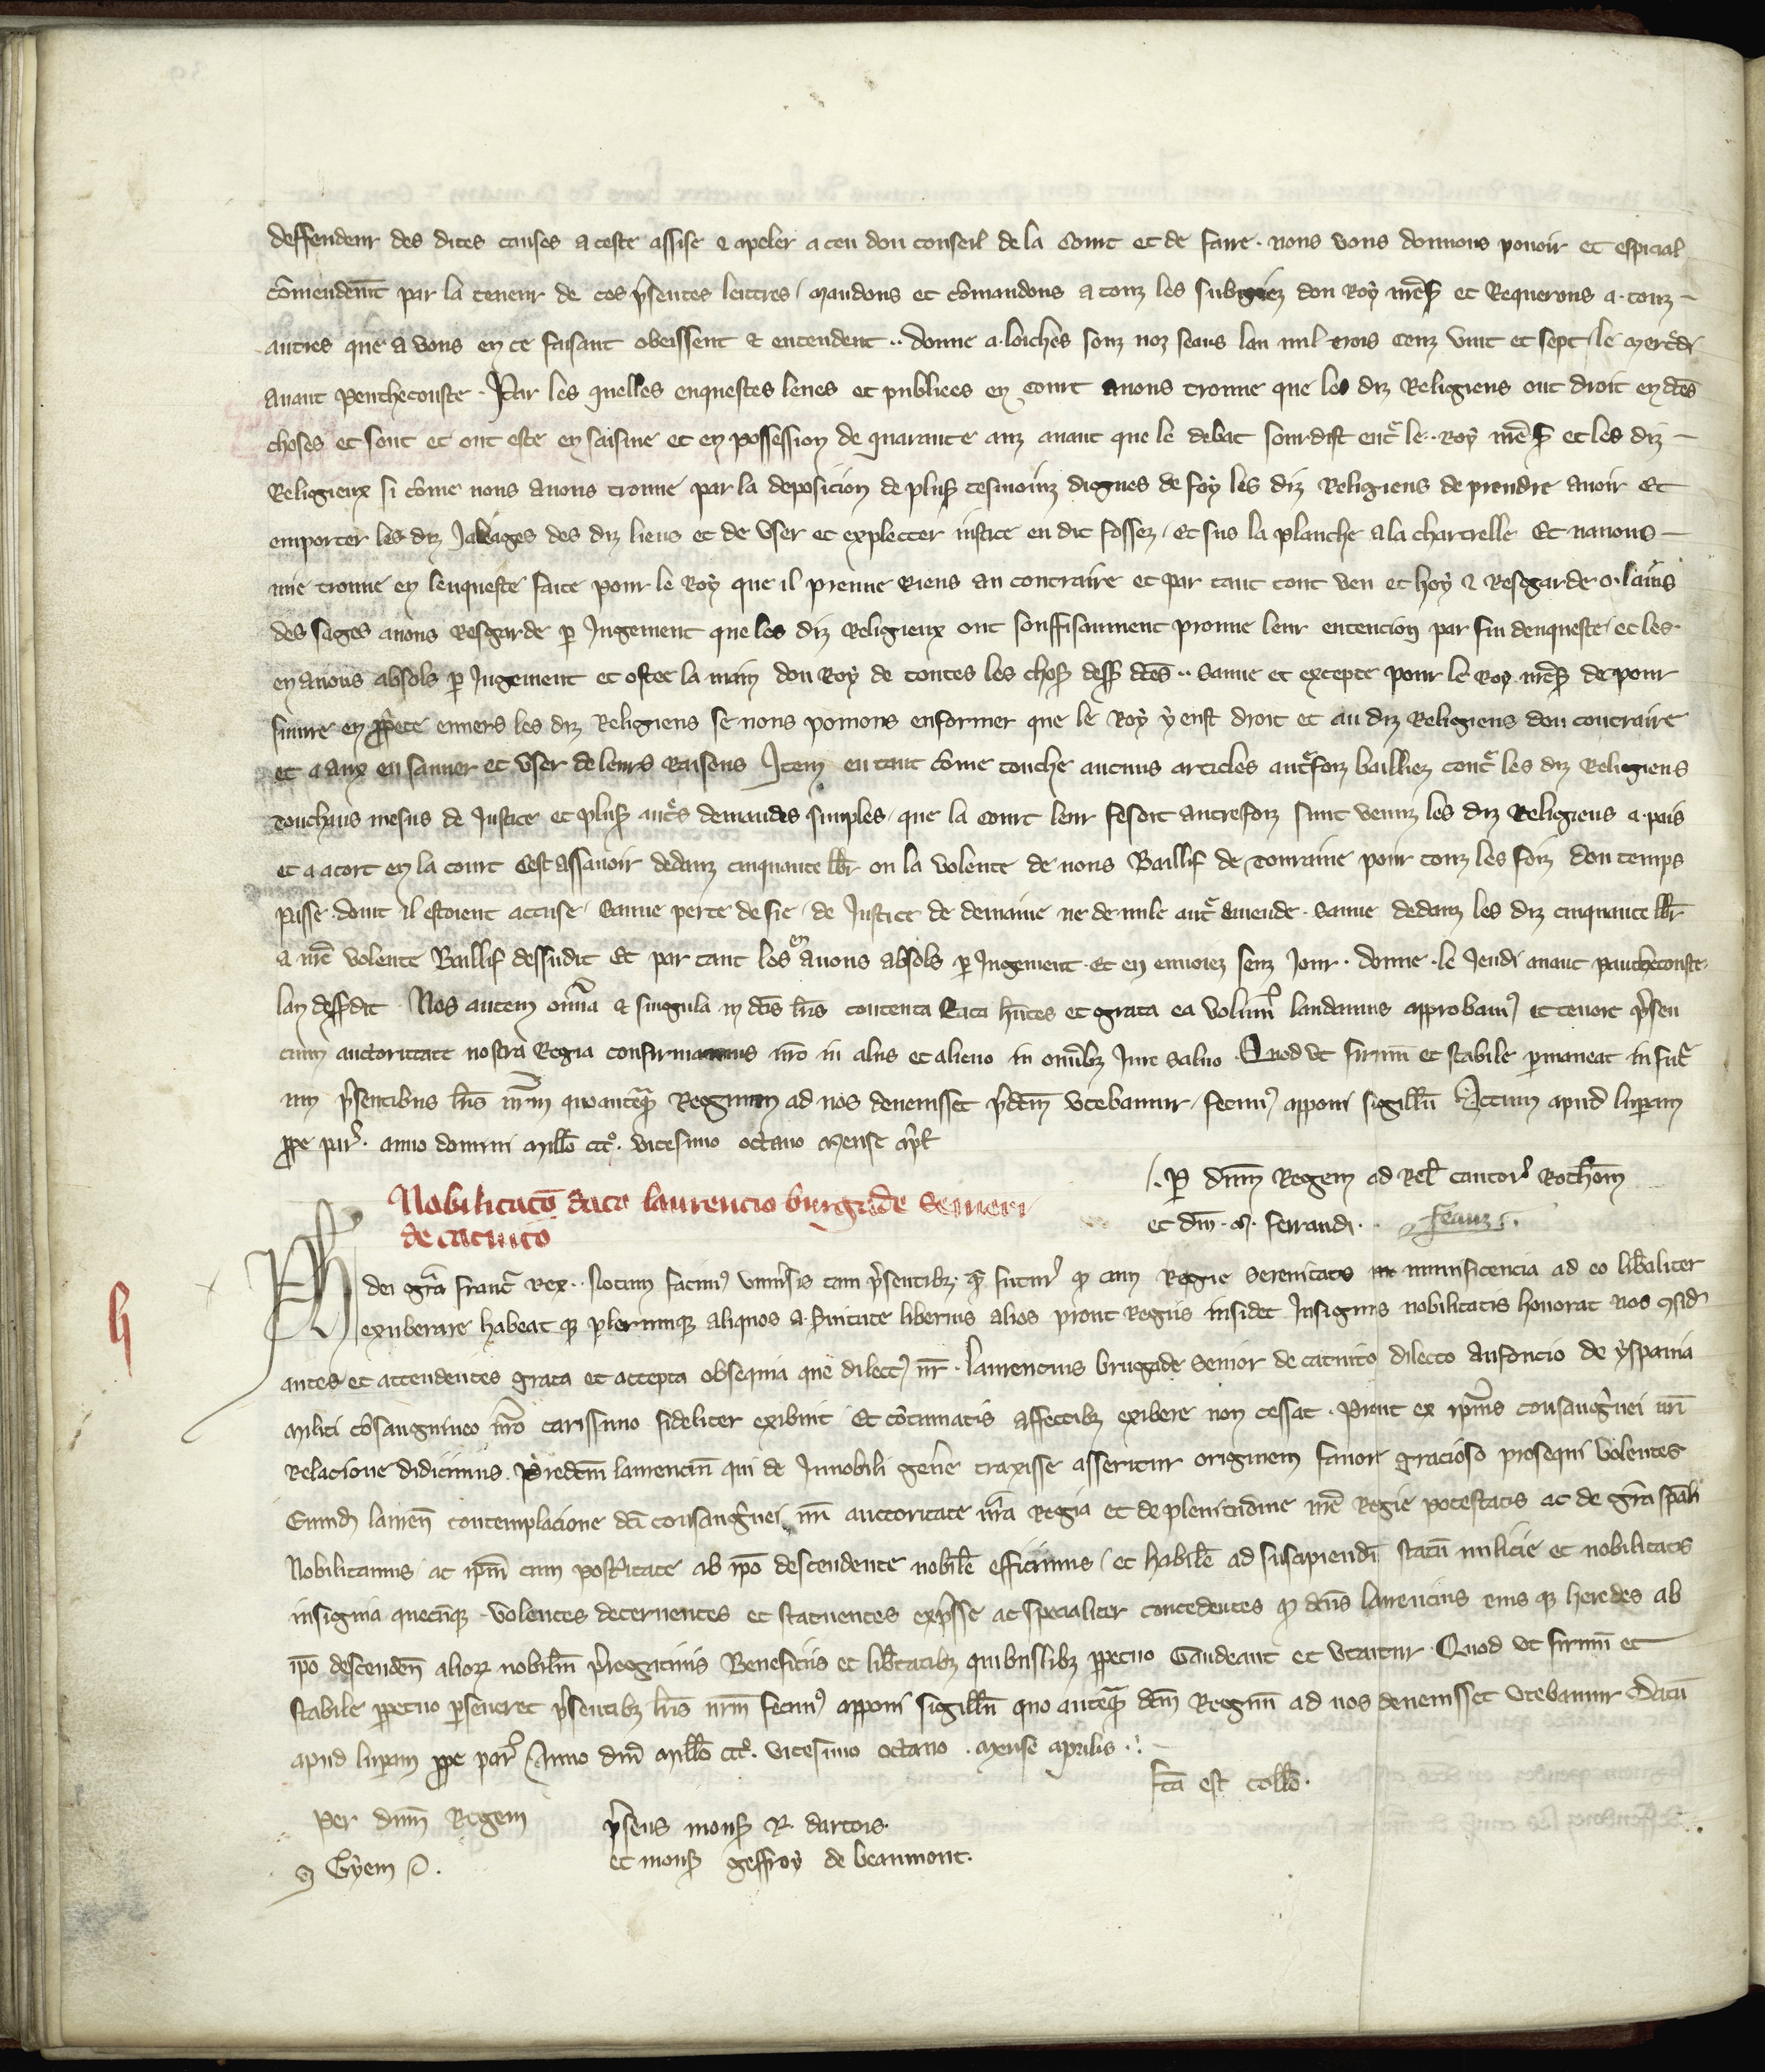 deffendeur des dites causes a ceste assise & apeler a ceu dou conseil de la Court et de faire . nous vous donnons pouoir et espicial
cōmendem̄t par la teneur de ces p̄sentes lettres / Mandons et cōmandons a touz les subgiez dou Roy n̄re s̄ et Requerons a . touz —
autres que a vous en ce faisant obeissent & entendent .. donne a . loiches souz noz seaus lan mil trois cenz vint et sept / le mercredi
auant Pentheconste . Par les quelles enquestes leues et publiees en Court auons trouue que les diz Religieus ont droit en dc̄es
choses et sont et ont este en saisine et en possession de quarante anz auant que le debat sourdist ent̄ le .. Roy n̄re s̄ et les diz —
Religieux si cōme nous auons trouue par la deposicion de plus̄ tesmoinz dignes de foy les diz Religieus de prendre auoir Et
emporter les diz Jalages des diz lieus et de vser et explecter justice eu dit fossez / Et sus la planche a la chartrelle Et nauons —
mie trouue en lenqueste faite pour le Roy que il prenne Riens au contraire et par tant tout veu et hoy & Resgarde o . lauis
des sages auons Resgarde p̄ Jugement que les diz Religieux ont souffisaument prouue leur entencion par fin denqueste / et les
en auons absols p̄ Jugement et oster la main dou Roy de toutes les chos̄ dess̄ dc̄es .. Sauue et excepte pour le Roy n̄re s̄ de pour
suiure en pp̄ete enuers les diz Religieus se nous pouions enformer que le Roy y eust droit et au diz Religieus dou contraire
et a aux en sauuer et vser de leurs Raisons Item en tant cōme touche aucuns articles aut̄foiz bailliez cont̄ les diz Religieus
touchans mesus de Justice et plus̄ aut̄es demandes simples / que la Court leur fesoit autrefoiz sunt venuz les diz Religieus a . pais
et a acort en la court Cest assauoir dedanz cinquante lb̄r ou la volente de nous Baillif de touraine pour touz les foiz dou temps
passe . dont il estoient accuse / Sanue perte de fie / de Justice de demaine ne de nule aut̄ amende . Sauue dedanz les diz cinquante lb̄r
a n̄re volente Baillif dessusdit Et par tant les en auons absols p̄ Jugement . Et en enuoiez senz Jour . donne . le Jeudi auant pantheconste
lan dess̄dit . Nos autem om̄ia & singula in dc̄is l̄ris contenta Rata h̄ntes et grata ea volum̄ laudamus approbam᷒ et tenore p̄sen
cium auctoritate nostra Regia confirmamus n̄ro in aliis et alieno in omībꝫ Jure saluo . Quod vt firmū et stabile p̄maneat in fut̄
rum p̄sentibus l̄ris n̄rm quo anteq̄ Regnum ad nos deuenisset p̄dc̄m vtebamur / fecim᷒ apponi sigillū Actum apud luparam
ꝓpe par̄ . anno domini mill̄o ccc° . vicesimo octauo mense apl̄
.. P̄ dn̄m Regem ad Rel̄ cantor̄ Rothom̄
et dn̄i . M . ferrandi .. Feauz .
Nobilitacō data laurencio burgade Semeri
de catuico
Ph dei gr̄a franc̄ Rex .. Notum facim᷒ vniu̅sis tam p̄sentibꝫ q̄ futur̄ ꝙ cum Regie Serenitatis munificencia ad eo lib̄aliter
exuberare habeat qȝ plerumqȝ aliquos a . s̄uitute liberius alios prout Regiis insidet Insigniis nobilitatis honorat nos ꝯsid̄
antes et attendentes grata et accepta obsequia que dilect᷒ n̄r . laurencius brugade senior de catuico dilecto Aufoncio de yspania
militi cōsanguineo n̄ro carissimo fideliter exibuit Et cōtinuatis affectibꝫ exibere non cessat . Prout ex ip̄ius consang̅nei n̄ri
Relacione didicimus . Predc̄m laurenciū qui de Innobili gen̄e traxisse asseritur originem fauore gracioso prosequi volentes
Eumdꝫ lauren̄ contemplacione dc̄i consang̅nei n̄ri auctoritate n̄ra Regia et de plenitudine n̄re Regie potestatis ac de gr̄a sp̄ali
Nobilitamus / ac ip̄m cum post̄itate ab ip̄o descendente nobilē efficimus / et habilē ad suscipiendū statū milicie et nobilitatis
insignia quecūqȝ . volentes decernentes et statuentes exp̄sse ac specialiter concedentes ꝙ dc̄us laurencius eius qȝ heredes ab
ip̄o descenden̄ alioꝝ nobiliū p̄rogatiuis Beneficiis et lib̄tatibꝫ quibuslibꝫ ꝑpetuo Gaudeant et vtantur . Quod vt firmū et
stabile ꝑpetuo ꝑseueret p̄sentibꝫ l̄ris n̄rm fecim᷒ apponi sigillū quo anteq̄ dc̄m Regnū ad nos deuenisset vtebamur Datū
apud luparam ꝓpe par̄ Anno dn̄i mill̄o ccc° . vicesimo octauo . Mense aprilis ..
fc̄a est coll̄o .
Per dn̄m Regem p̄sens mons̄ R . dartois .
et mons̄ geffroy de beaumont .
ꝯ Gyem .